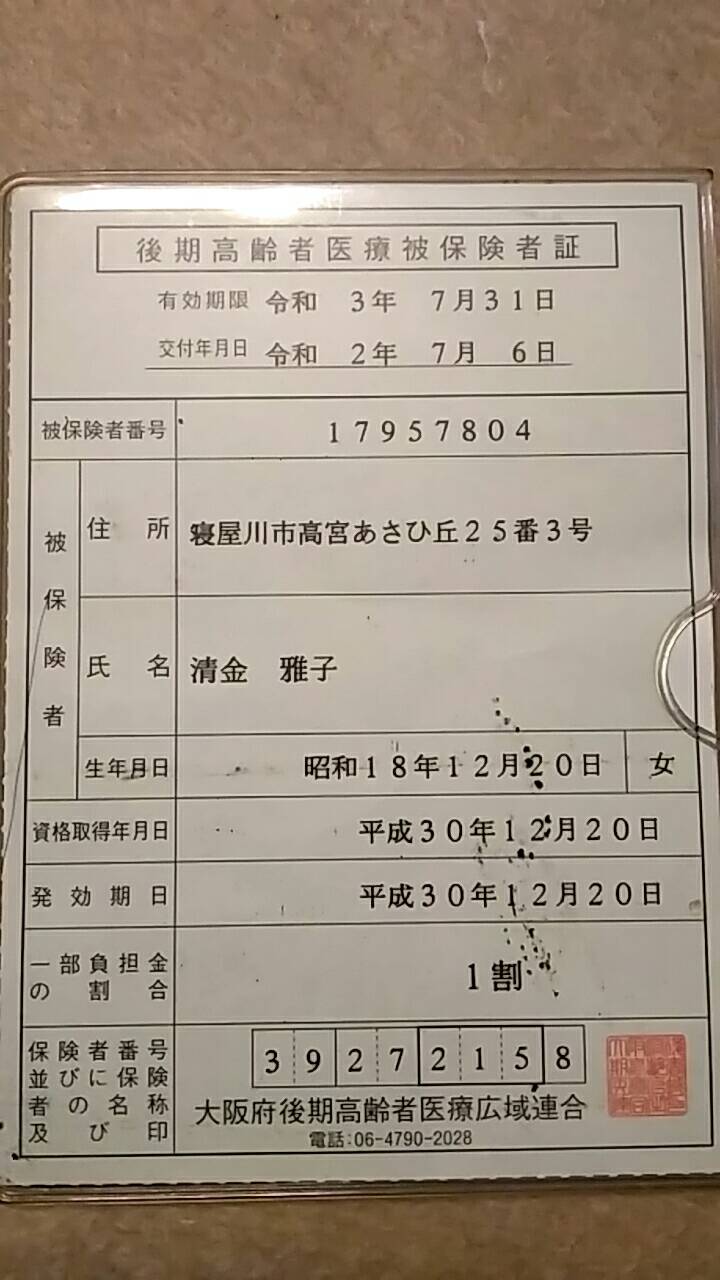 後期高齢者医療被保険者証
有効期限 令和 3年 7月31日
交付年月日 令和 2年 7月 6日
被保険者番号 17957804
被保険者
住所 寝屋川市高宮あさひ丘25番3号
氏名 清金 雅子
生年月日 昭和18年12月20日 女
資格取得年月日 平成30年12月20日
発効期日 平成30年12月20日
一部負担金の割合 1割
保険者番号並びに保険者の名称及び印 39272158
大阪府後期高齢者医療広域連合
電話:06-4790-2028